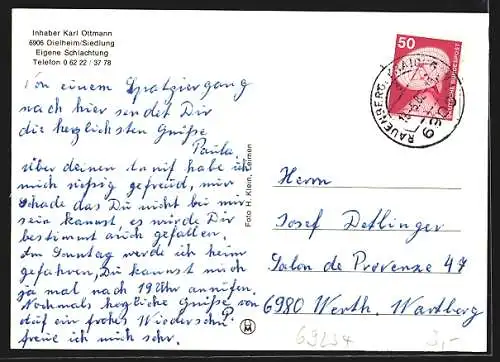 Inhaber Karl Oltmann
6906 Dielheim/Siedlung
Eigene Schlachtung
Telefon 0 62 22 / 37 78
Von einem Spatziergang
nach hier sendet Dir
die herzlichsten Grüße
Paula.
über deinen Anruf habe ich
mich riesig gefreud, nur
schade das Du nicht bei mir
sein kannst, es würde Dir
bestimmt auch gefallen,
Am Sonntag werde ich heim
gefahren, Du kannst mich
ja mal nach 19 Uhr anrufen.
Nochmals herzliche Grüße von
P.
auf ein frohes Wiedersehn
freue ich mich sehr.
Foto H. Klein, Leimen
50
DEUTSCHE BUNDESPOST
RAUENBERG, KRAICHGAU
Herrn
Josef Detlinger
Salon de Provenze 47
6980 Werth. Wartberg
69234
3,-